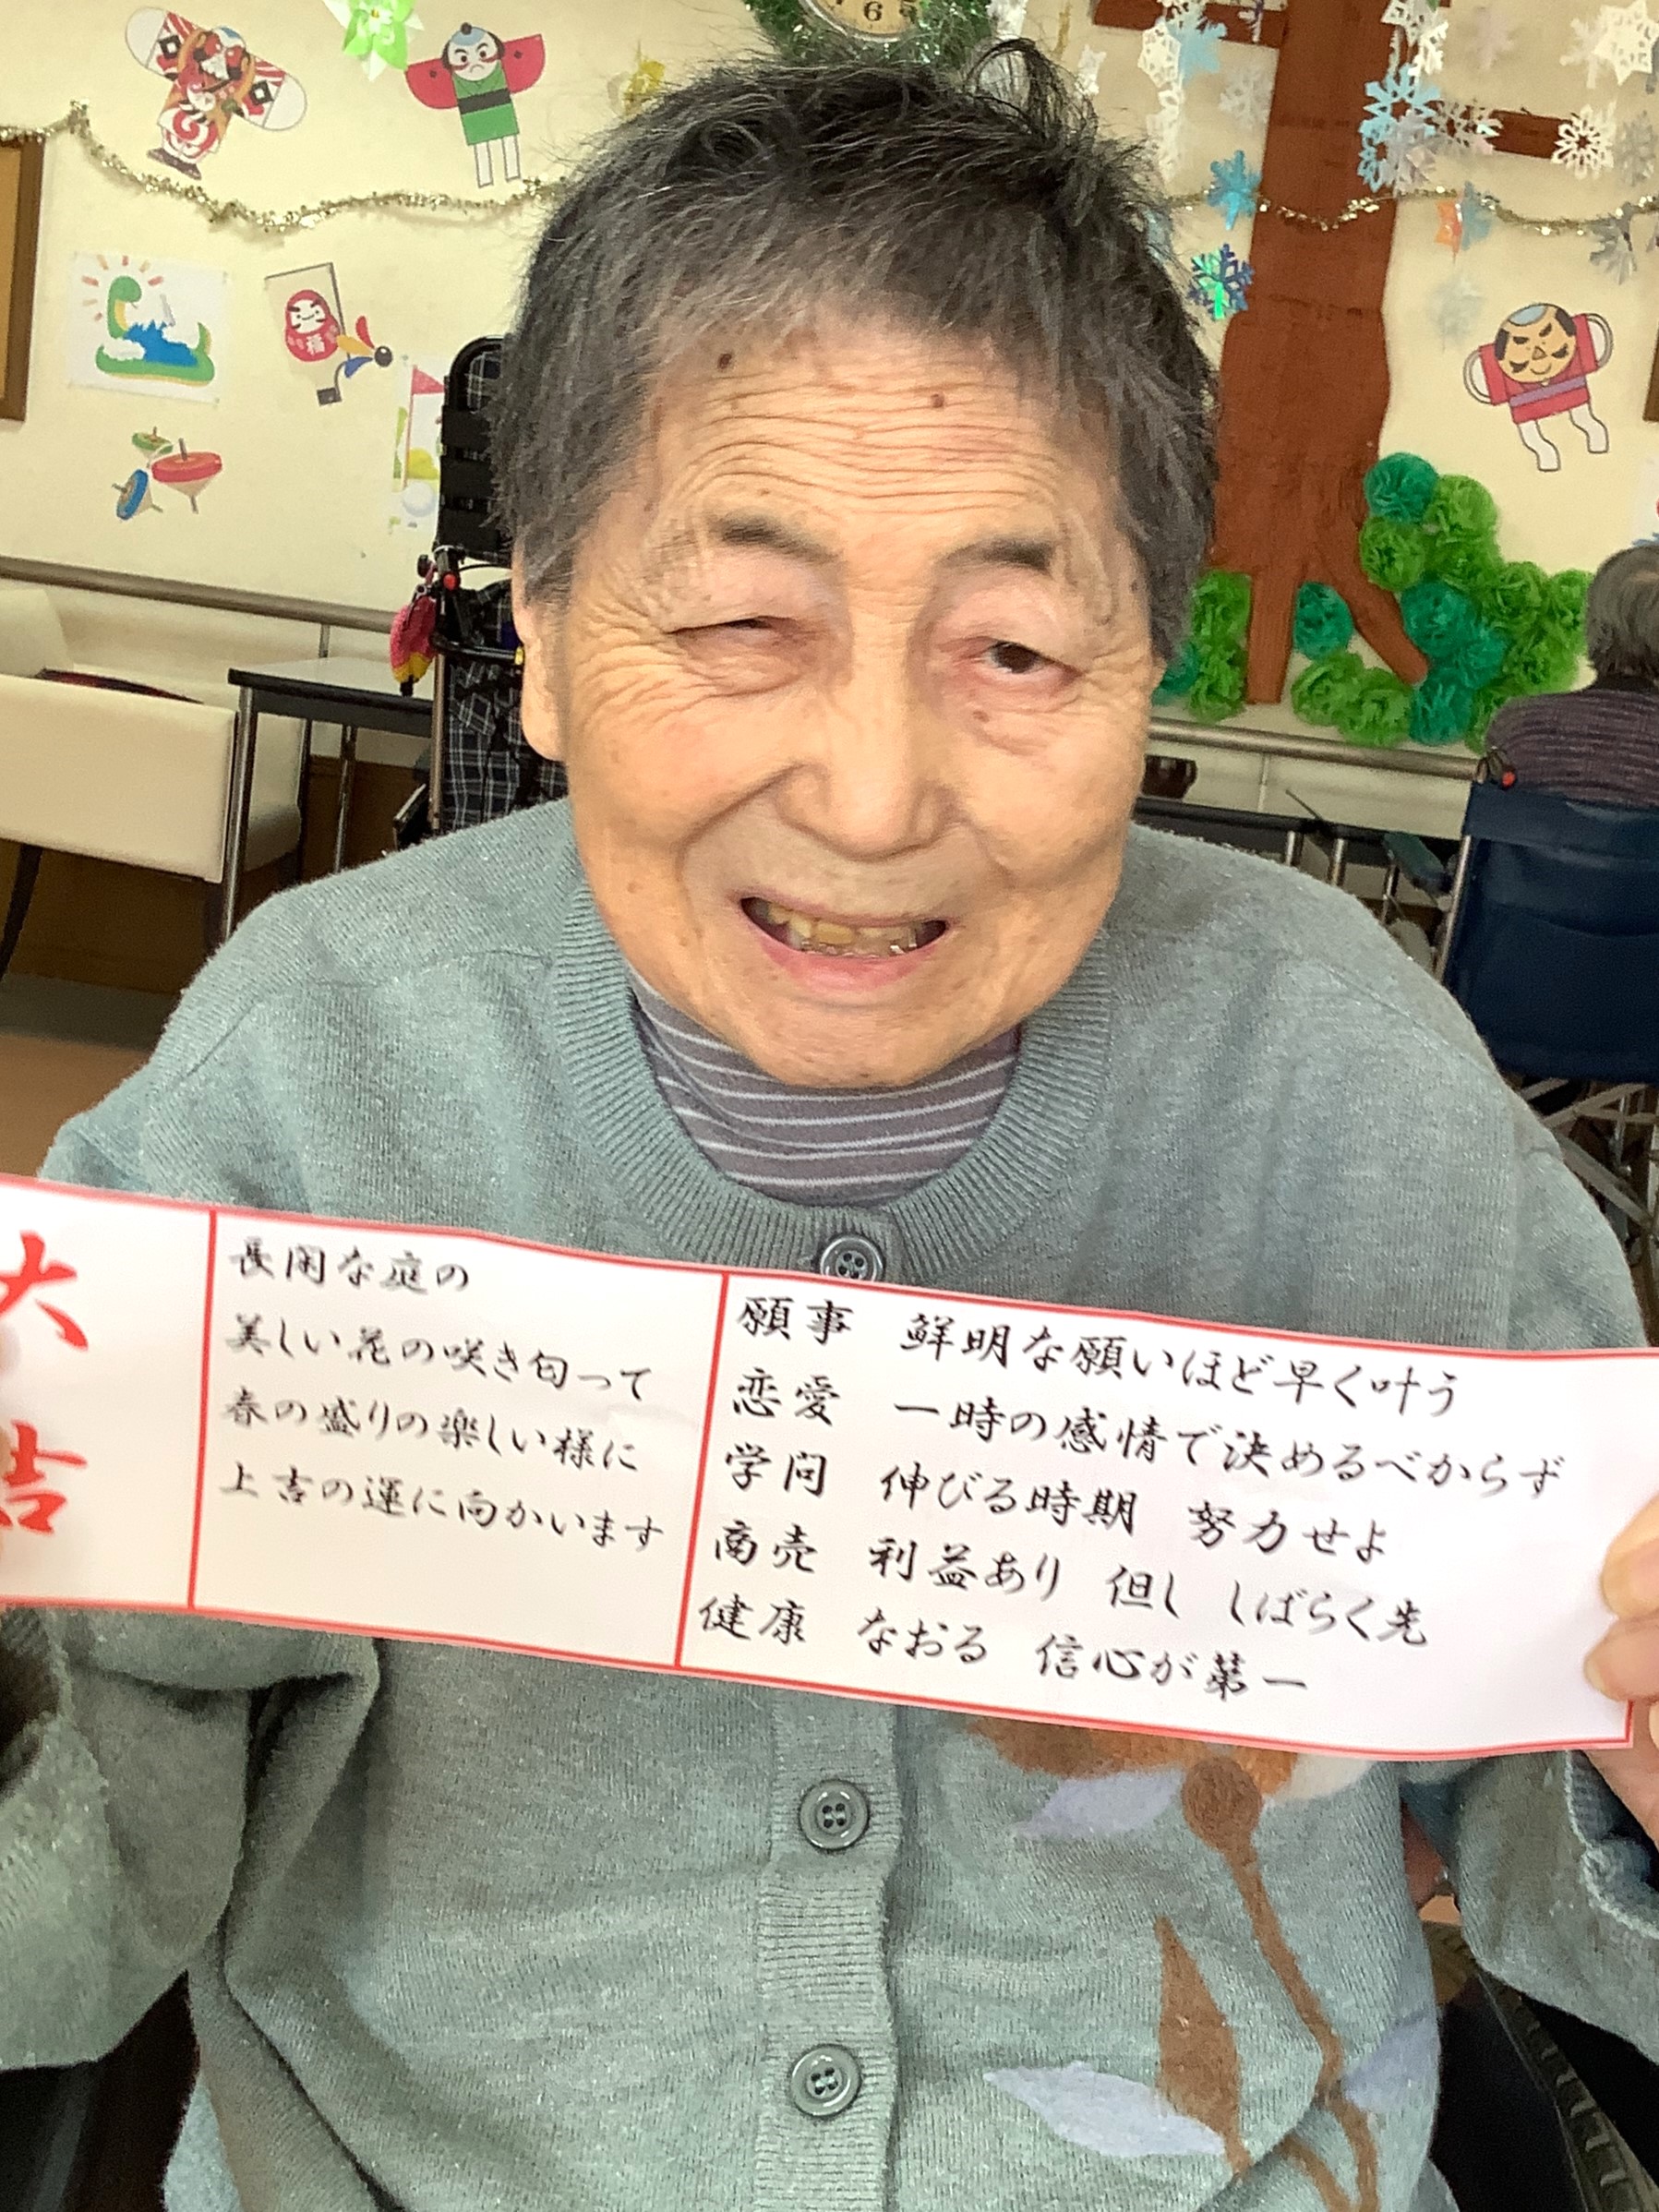 6
福
大吉
長閑な庭の
美しい花の咲き匂って
春の盛りの楽しい様に
上吉の運に向かいます
願事 鮮明な願いほど早く叶う
恋愛 一時の感情で決めるべからず
学問 伸びる時期 努力せよ
商売 利益あり 但し しばらく先
健康 なおる 信心が第一